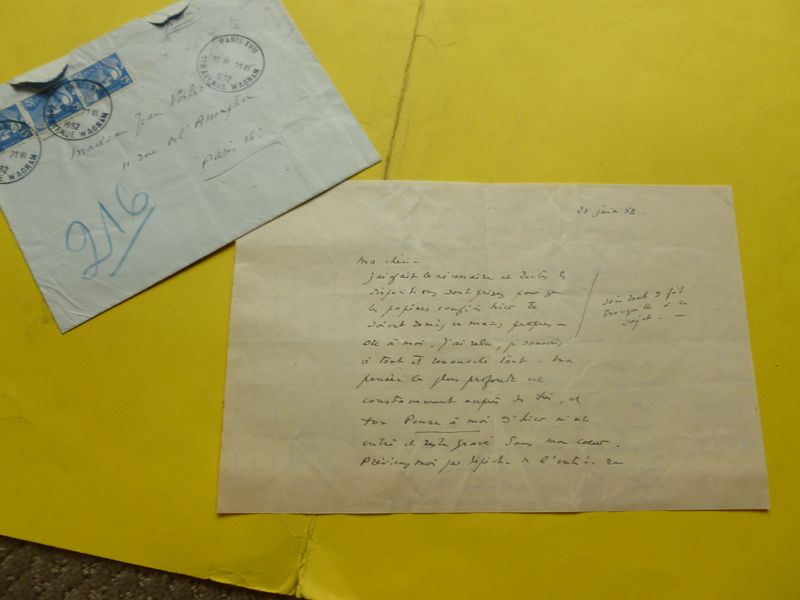 PARIS XVII
1952
AVENUE WAGRAM
1952
AVENUE WAGRAM
Madame Jean Voilier
11 rue de l'Assomption
Paris 16e
216
25 juin 52.
Ma chérie
j'ai fait le nécessaire et toutes les
dispositions sont prises pour que
les papiers confiés hier te
soient remis en mains propres —
ou à moi. J'ai relu, je souscris
à tout et renouvelle tout. Ma
pensée la plus profonde est
constamment auprès de toi, et
ton Pense à moi d'hier m'est
entré et reste gravé dans mon coeur.
Préviens moi par dépêche
sois tout à fait
tranquille à ce
sujet. —